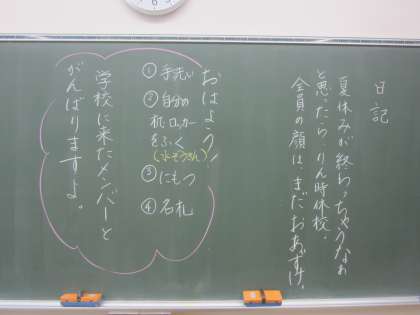 日記
夏休みが終わっちゃうなぁ
と思ったら、りん時休校。
全員の顔は、まだおあずけ。
おはよう！
①手洗い
②自分の
机 ロッカー
をふく
(水ぞうきん)
③にもつ
④名札
学校に来たメンバーと
がんばりますよ。